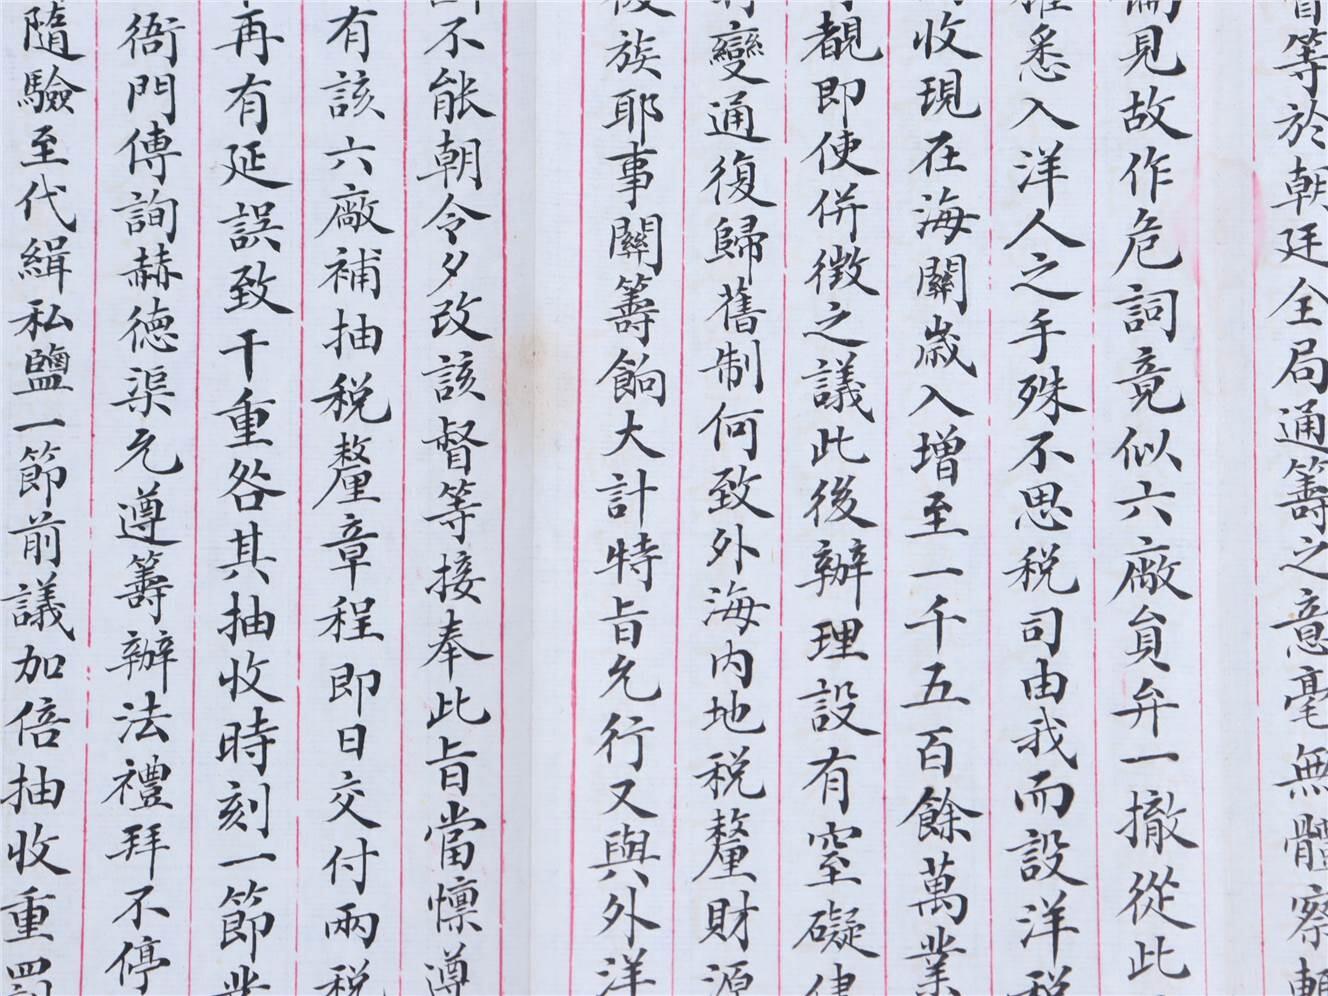 等於朝廷全局通籌之意毫無體察
見故作危詞竟似六廠員弁一撤從此
悉入洋人之手殊不思稅司由我而設洋稅
收現在海關歲入增至一千五百餘萬業
覩即使併徵之議此後辦理設有窒礙
變通復歸舊制何致外海內地稅釐財源
族耶事關籌餉大計特旨允行又與外洋
不能朝令夕改該督等接奉此旨當懍遵
有該六廠補抽稅釐章程即日交付兩稅
再有延誤致干重咎其抽收時刻一節業
衙門傳詢赫德渠允遵籌辦法禮拜不停
隨驗至代緝私鹽一節前議加倍抽收重